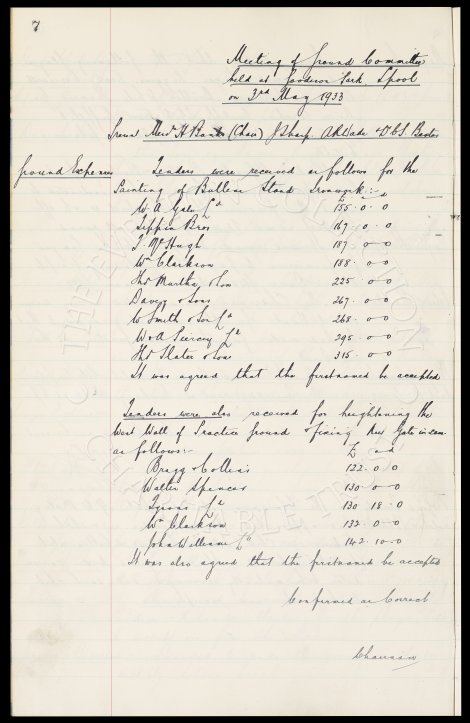 7
Meeting of Ground Committee
held at Goodison Park, Lpool
on 3rd May 1933
Present Messrs H Banks (Chair) J Sharp A R Wade & D C S Baxter
Ground Expenses Tenders were received as follows for the
Painting of Bullens Stand Ironwork:-
£ s d
W. A Gale Ld 155 . 0 . 0
Tippin Bros 167 . 0 . 0
J. McHugh 187 . 0 0
Wm Clarkson 188 . 0 0
Thos Murtha & Son 225 . 0 0
Davey & Sons 267 . 0 0
W Smith & Son Ld 268 . 0 0
W & A Ld 295 . 0 0
Thos Slater & Son 315 . 0 0
It was agreed that the firstnamed be accepted
Tenders were also received for heightening the
West Wall of Practice Ground & fixing New Gate in
as follows:- £ s d
Bragg & Collins 122 . 0 0
Walter Spencer 130 . 0 0
Tysons Ld 130 18 0
Wm Clarkson 132 . 0 0
John Williams Ld 142 . 10 0
It was also agreed that the firstnamed be accepted
Confirmed as Correct
Chairman
THE EVERTON COLLECTION
CHARITABLE TRUST